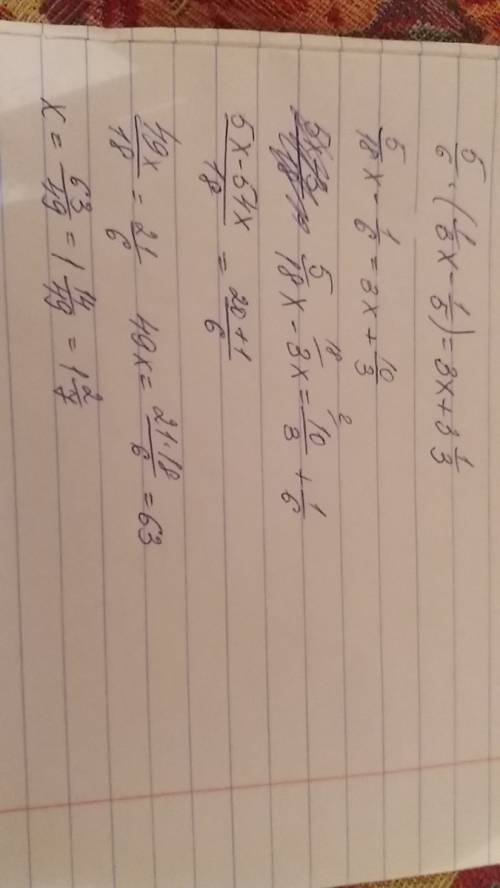 5/6 · (1/3 x - 1/5) = 3x + 3 1/3
5/18 x - 1/6 = 3x + 10/3
5/18 x - 3x = 10/3 + 1/6
(5x - 54x)/18 = (20 + 1)/6
49x/18 = 21/6 49x = (21 · 18)/6 = 63
x = 63/49 = 1 14/49 = 1 2/7